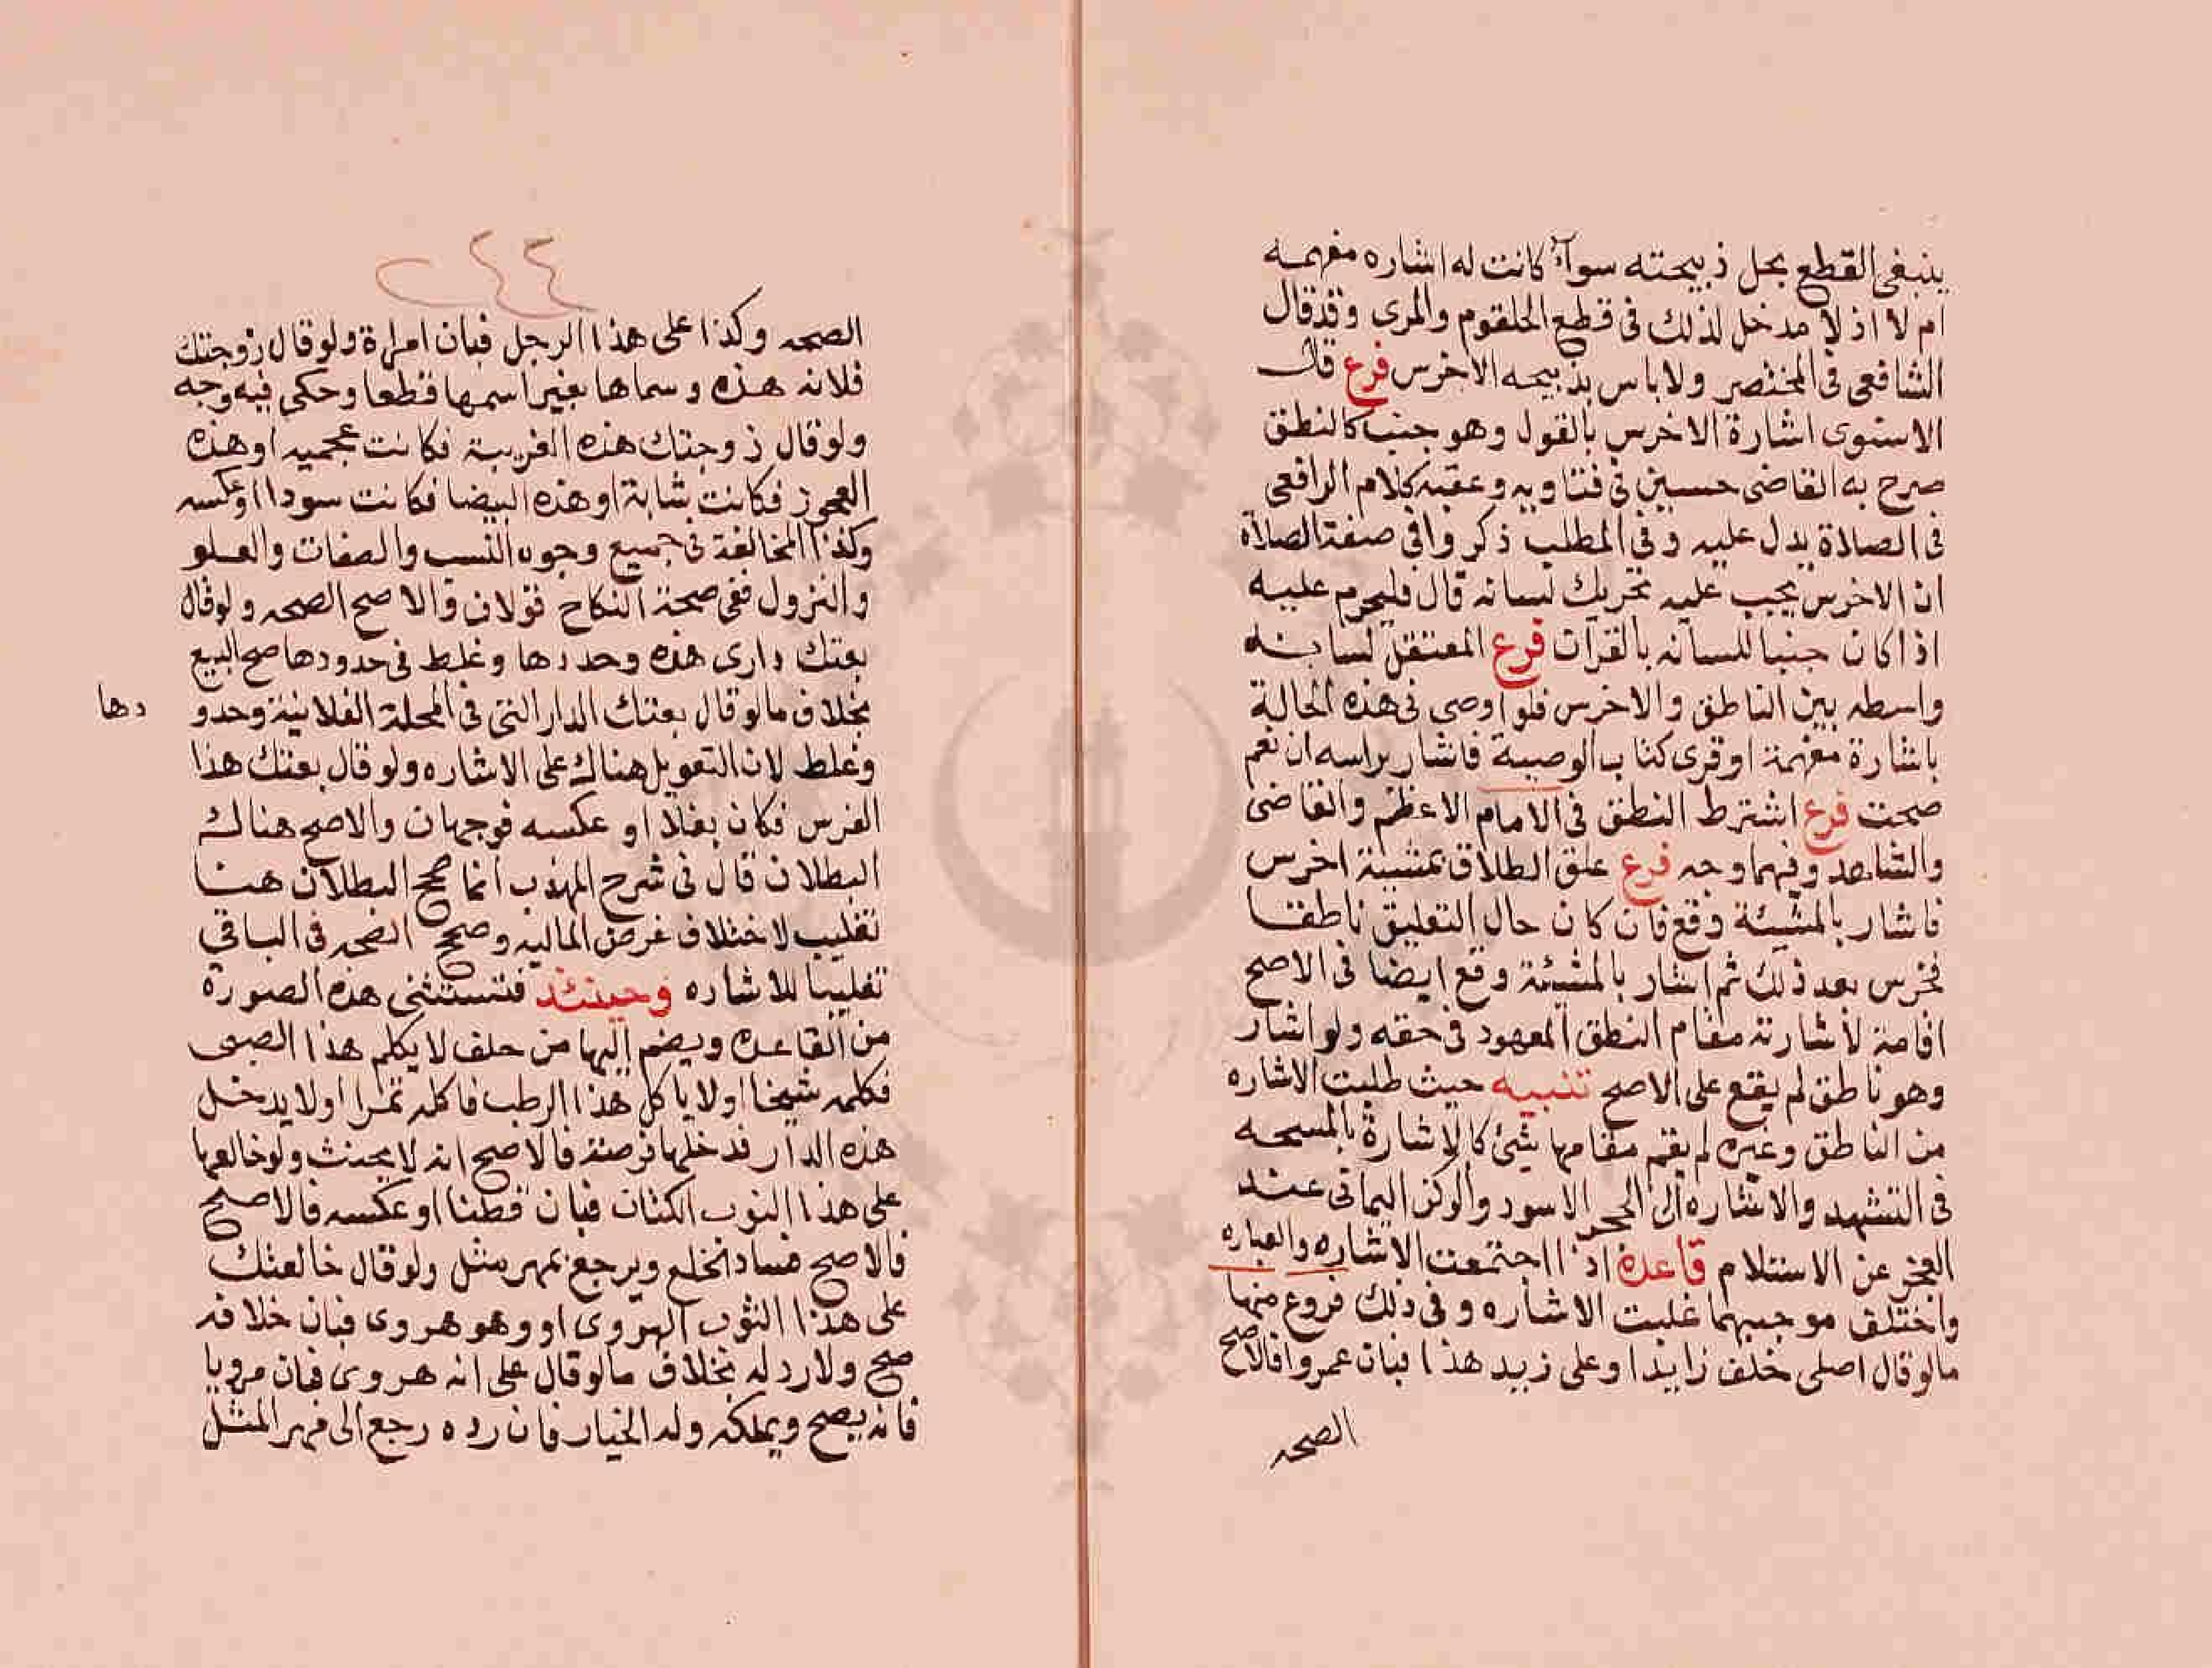 ينبغى القطع بحل ذبيحته سوآء كانت له اشاره مفهمه
ام لا اذ لا مدخل لذلك فى قطع الحلقوم والمرى وقد قال
الشافعى فى المختصر ولا باس بذبيحه الاخرس فرع قال
الاسنوى اشارة الاخرس بالقول وهو جنب كالنطق
صرح به القاضى حسين فى فتاويه وعقبه كلام الرافعى
فى الصلاة يدل عليه وفى المطلب ذكروا فى صفة الصلاة
ان الاخرس يجب عليه تحريك لسانه قال فليحرم عليه
اذا كان جنبا للسانه بالقرآن فرع المعتقل لسانه
واسطه بين الناطق والاخرس فلو اوصى فى هذه الحالة
باشارة مفهمة او قرى كتاب الوصية فاشار براسه ان نعم
صحت فرع اشترط النطق فى الامام الاعظم والقاضى
والشاهد وفيهما وجه فرع علق الطلاق بمشية اخرس
فاشار بالمشيئة وقع فان كان حال التعليق ناطقا
فخرس بعد ذلك ثم اشار بالمشيئة وقع ايضا فى الاصح
اقامة لاشارته مقام النطق المعهود فى حقه ولو اشار
وهو ناطق لم يقع على الاصح تنبيه حيث طلبت الاشاره
من الناطق وغيره لم يقم مقامها شئ كالاشارة بالمسبحه
فى التشهد والاشاره الى الحجر الاسود والركن اليمانى عند
العجز عن الاستلام قاعدة اذا اجتمعت الاشاره والعباره
واختلف موجبهما غلبت الاشاره وفى ذلك فروع منها
مالو قال اصلى خلف زايدا وعلى زيد هذا فبان عمروا فالاصح
الصحه
٤٤
الصحه وكذا على هذا الرجل فبان امراة ولو قال زوجتك
فلانه هذه وسماها بغير اسمها قطعا وحكى فيه وجه
ولو قال زوجتك هذه العربية فكانت عجميه او هذه
العجوز فكانت شابة او هذه البيضا فكانت سودا او عكسه
وكذا المخالفة فى جميع وجوه النسب والصفات والعلو
والنزول ففى صحة النكاح قولان والاصح الصحه ولو قال
بعتك دارى هذه وحددها وغلط فى حدودها صح البيع
بخلاف مالو قال بعتك الدار التى فى المحلة الفلانية وحدو
دها
وغلط لان التعويل هناك على الاشاره ولو قال بعتك هذا
الفرس فكان بغلا او عكسه فوجهان والاصح هناك
البطلان قال فى شرح المهذب انما صحح البطلان هنا
تغليب لاختلاف غرض الماليه وصحح الصحه فى الباقى
تغليبا للاشاره وحينئذ فتستثنى هذه الصورة
من القاعدة ويضم اليها من حلف لا يكلم هذا الصبى
فكلمه شيخا او لا ياكل هذا الرطب فاكله تمرا او لا يدخل
هذه الدار فدخلها عرصة فالاصح انه لا يحنث ولو خالعها
على هذا الثوب الكتان فبان قطنا او عكسه فالاصح
فالاصح فساد الخلع ويرجع بمهر مثل ولو قال خالعتك
على هذا الثوب الهروى او وهو هروى فبان خلافه
صح ولا رد له بخلاف مالو قال على انه هروى فبان مرويا
فانه يصح ويملكه وله الخيار فان رده رجع الى مهر المثل